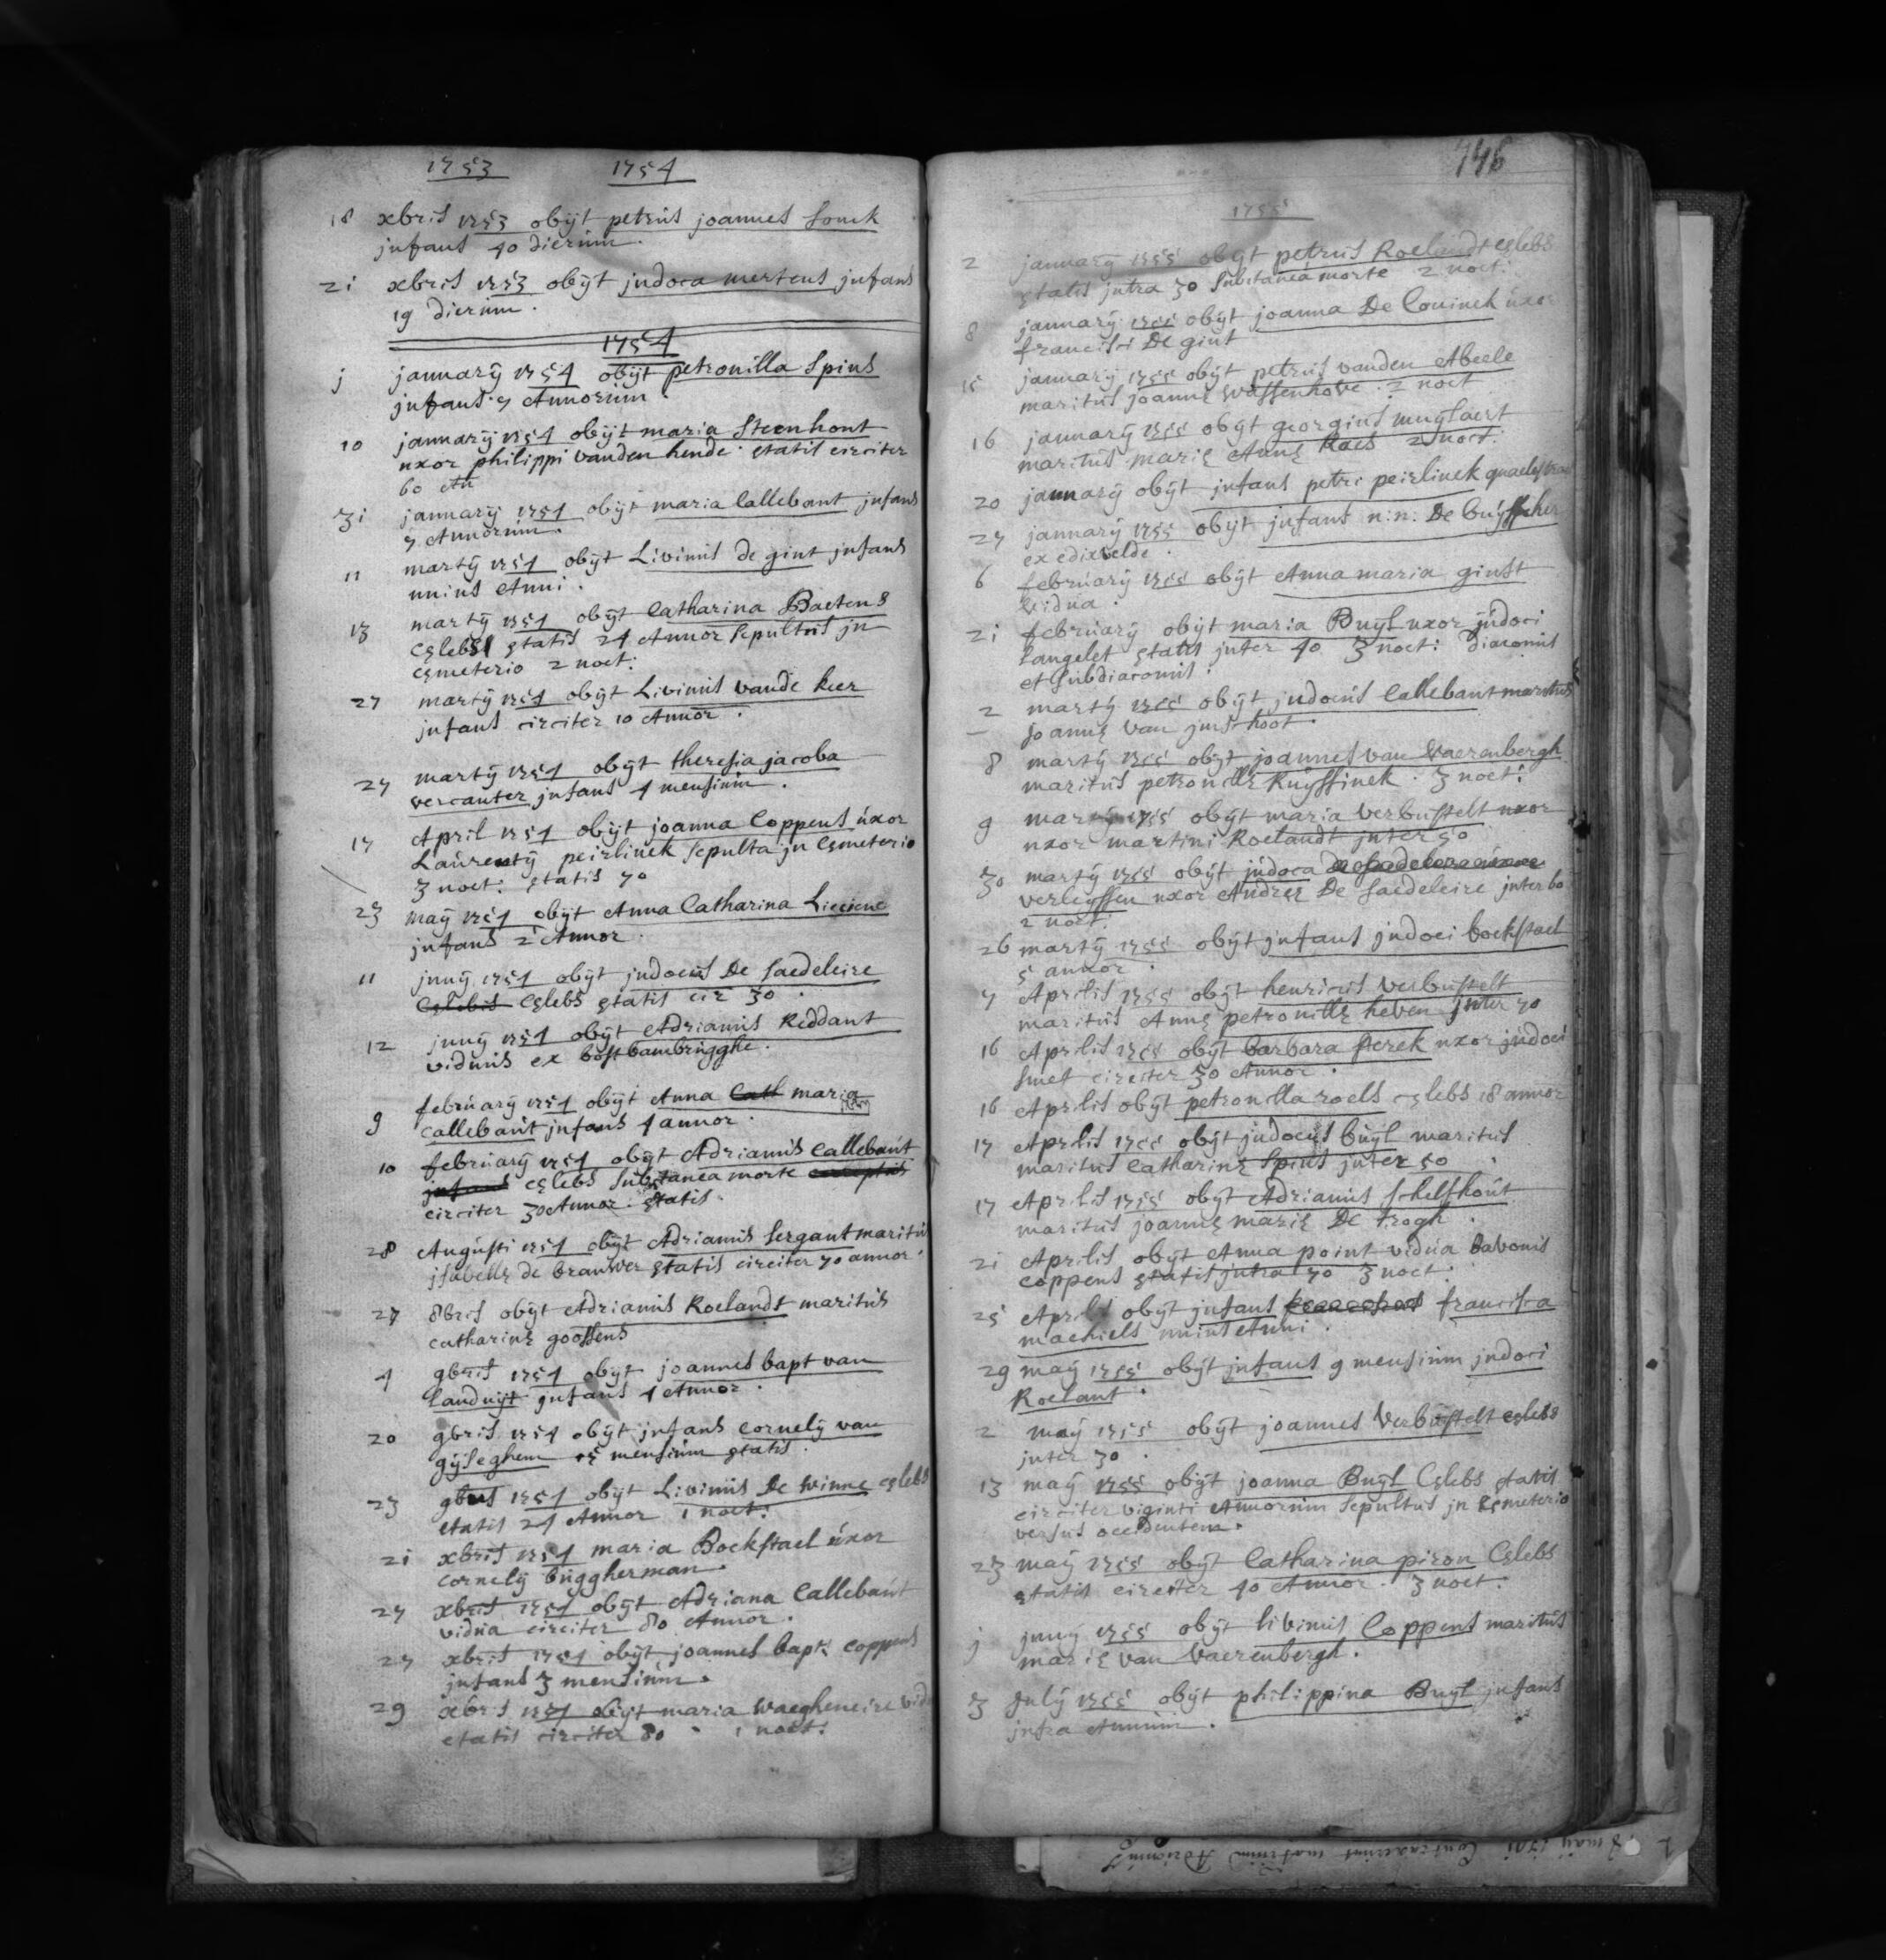 1753 1754
18 xbris 1753 obÿt petrus joannes Sonck
jnfans 40 dierum.
21 xbris 1753 obÿt judoca mertens jnfans
19 dierum.
1754
j januarÿ 1754 obÿt petronilla Spins
jnfans 7 Annorum
10 januarÿ 1754 obÿt maria Steenhout
uxor philippi vanden hende ętatis circiter
60 An
31 januarÿ 1754 obÿt maria Callebaut jnfans
7 Annorum.
11 martÿ 1754 obÿt Livinus de gint jnfans
unius Anni.
13 martÿ 1754 obÿt Catharina Baetens
cęlebs ętatis 24 Annor sepultus jn
cęmeterio 2 noct:
27 martÿ 1754 obÿt Livinus vande keer
jnfans circiter 10 Annor.
27 martÿ 1754 obÿt theresia jacoba
vercauter jnfans 4 mensium.
17 April 1754 obÿt joanna Coppens uxor
Laurentÿ peirlinck sepulta jn Cęmeterio
3 noct: ętatis 70
23 maÿ 1754 obÿt Anna Catharina
jnfans 2 Annor.
11 junÿ 1754 obÿt judocus De Saedeleire
Cęlebis Cęlebs ętatis cir 30.
12 junÿ 1754 obÿt Adrianus Reddant
viduus ex bostbambrugghe.
9 februarÿ 1754 obÿt Anna Cath maria
callebaut jnfans 4 annor.
10 februarÿ 1754 obÿt Adrianus Callebaut
jnfans cęlebs subitanea morte correptus
circiter 30 Annor. ętatis.
28 Augusti 1754 obÿt Adrianus Sergant maritus
jsabellę de brauwer ętatis circiter 70 annor.
27 8bris obÿt Adrianus Roelandt maritus
catharinę goossens
4 9bris 1754 obÿt joannes bapt van
Landuÿt jnfans 4 Annor.
20 9bris 1754 obÿt jnfans cornelÿ van
gÿseghem 15 mensium ętatis.
23 9bris 1754 obÿt Livinus De Winne cęlebs
etatis 24 Annor 1 noct:
21 xbris 1754 maria Bockstael uxor
cornelÿ buggherman.
27 xbris 1754 obÿt Adriana Callebaut
vidua circiter 80 Annor.
27 xbris 1754 obÿt joannes bapt Coppens
jnfans 3 mensium.
29 xbris 1754 obÿt maria Waegheneire vid
etatis circiter 80. 1 noct:
146
1755
2 januarÿ 1755 obÿt petrus Roelandt cęlebs
ętatis jntra 30 subitanea morte 2 noct:
8 januarÿ 1755 obÿt joanna De Coninck uxor
francisci De gint
15 januarÿ 1755 obÿt petrus vanden Abeele
maritus joannę Wassenhove. 2 noct
16 januarÿ 1755 obÿt georgius muÿlaert
maritus marię Annę Raes 2 noct:
20 januarÿ obÿt jnfans petri peirlinck
27 januarÿ 1755 obÿt jnfans n:n: De buÿsscher
ex edixvelde.
6 februarÿ 1755 obÿt Anna maria ginst
vidua.
21 februarÿ obÿt maria Buÿl uxor judoci
Langelet ętatis jnter 40 3 noct: diaconus
et subdiaconus.
2 martÿ 1755 obÿt judocus Callebaut maritus
joannę van jmschoot.
8 martÿ 1755 obÿt joannes van Vaerenbergh
maritus petronillę Ruÿssinck. 3 noct:
9 martÿ 1755 obÿt maria verbustelt uxor
uxor martini Roelandt jnter 50
30 martÿ 1755 obÿt judoca
verleÿssen uxor Andreę De Saedeleire jnter 60
2 noct.
26 martÿ 1755 obÿt jnfans judoci bockstael
5 annor.
7 Aprilis 1755 obÿt henricus verbustelt
maritus Annę petronillę heven jnter 70
16 Aprilis 1755 obÿt barbara sterck uxor judoci
Smet circiter 30 Annor.
16 Aprilis obÿt petronilla roels cęlebs 18 annor
17 Aprilis 1755 obÿt judocus buÿl maritus
maritus Catharinę Spins jnter 50.
17 Aprilis 1755 obÿt Adrianus schelfhout
maritus joannę marię De trogh.
21 Aprilis obÿt Anna point vidua Bavonis
Coppens ętatis jntra 70 3 noct:
25 Aprilis obÿt jnfans francisca
machiels unius Anni.
29 maÿ 1755 obÿt jnfans 9 mensium judoci
Roelant.
2 maÿ 1755 obÿt joannes Verbustelt cęlebs
jnter 30.
13 maÿ 1755 obÿt joanna Buÿl Cęlebs ętatis
circiter viginti Annorum sepultus jn Cęmeterio
versus occidentem.
23 maÿ 1755 obÿt Catharina piron Cęlebs
ętatis circiter 40 Annor. 3 noct:
j junÿ 1755 obÿt livinus Coppens maritus
marię van Vaerenbergh.
3 Julÿ 1755 obÿt philippina Buÿl jnfans
jnfra Annum.